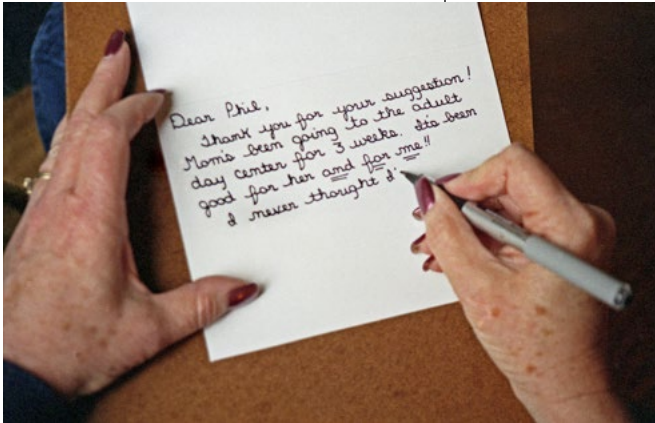 Dear Phil,
Thank you for your suggestion!
Mom's been going to the adult
day center for 3 weeks. It's been
good for her and for me!!
I never thought I'